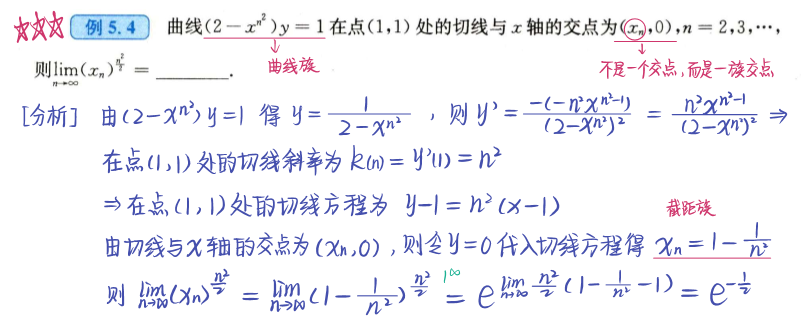 ☆☆☆ 例 5.4 曲线(2－x^{n^2})y＝1在点(1,1)处的切线与x轴的交点为(x_n,0),n＝2,3,⋯,
则lim_{n→∞}(x_n)^{n^2/2}＝______. 曲线族 不是一个交点,而是一族交点
[分析] 由(2-x^{n^2})y=1 得 y=1/(2-x^{n^2}) , 则 y'=-(-n^2x^{n^2-1})/(2-x^{n^2})^2 = n^2x^{n^2-1}/(2-x^{n^2})^2 ⇒
在点(1,1)处的切线斜率为 k(n)=y'(1)=n^2
⇒在点(1,1)处的切线方程为 y-1=n^2(x-1) 截距族
由切线与x轴的交点为(x_n,0),则令y=0代入切线方程得 x_n=1-1/n^2
则 lim_{n→∞}(x_n)^{n^2/2} = lim_{n→∞}(1-1/n^2)^{n^2/2} 1^∞ = e^{lim_{n→∞} n^2/2 (1-1/n^2-1)} = e^{-1/2}